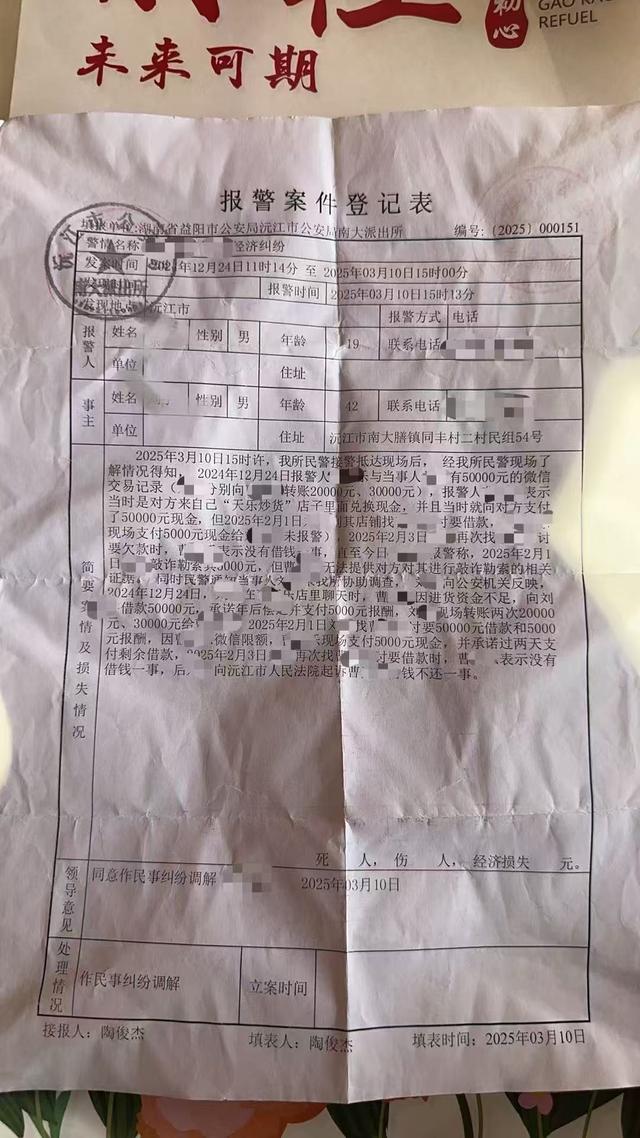 未来可期
初心
REFUEL
报警案件登记表
填表单位:湖南省益阳市公安局沅江市公安局南大派出所
编号:(2025)000151
警情名称
经济纠纷
发案时间
2024年12月24日11时14分 至 2025年03月10日15时00分
报警时间
2025年03月10日15时13分
发现地点
沅江市
报警方式
电话
报警人
姓名
性别
男
年龄
19
联系电话
单位
住址
事主
姓名
性别
男
年龄
42
联系电话
单位
住址
沅江市南大膳镇同丰村二村民组54号
简要案情及损失情况
2025年3月10日15时许，我所民警接警抵达现场后，经我所民警现场了
解情况得知，2024年12月24日报警人 乐与当事人 有50000元的微信
交易记录（ 分别向 转账20000元、30000元），报警人 表示
当时是对方来自己“天乐炒货”店子里面兑换现金，并且当时就向对方支付
了50000元现金，但2025年2月1日 到其店铺找 讨要借款，
现场支付5000元现金给 未报警）2025年2月3日 再次找 讨
要欠款时，曹 表示没有借钱一事，直至今日 报警称，2025年2月1
日 敲诈勒索其5000元，但曹 无法提供对方对其进行敲诈勒索的相关
证据。同时民警通知当事人刘 来我所协助调查， 向公安机关反映，
2024年12月24日， 至 乐店里聊天时，曹 因进货资金不足，向刘
借款50000元，承诺年后偿还并支付5000元报酬，刘 现场转账两次20000
元、30000元给 2025年2月1日刘 找曹 讨要50000元借款和5000
元报酬，因曹 微信限额， 乐现场支付5000元现金，并承诺过两天支
付剩余借款，2025年2月3日 再次找 讨要借款时，曹 表示没有
借钱一事，后 向沅江市人民法院起诉曹 钱不还一事。
死 人，伤 人，经济损失 元。
领导意见
同意作民事纠纷调解
2025年03月10日
处理情况
作民事纠纷调解
立案时间
接报人：陶俊杰
填表人：陶俊杰
填表时间：2025年03月10日